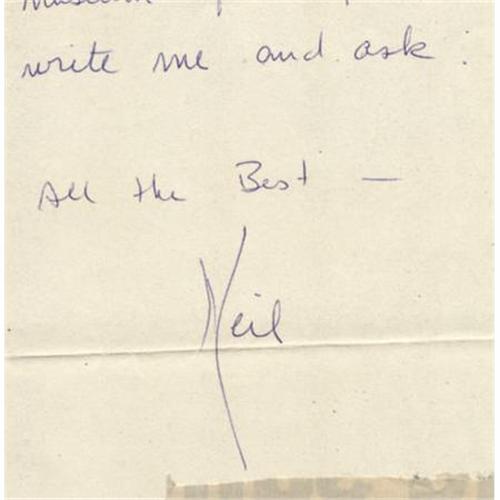 write me and ask.
All the Best —
Neil